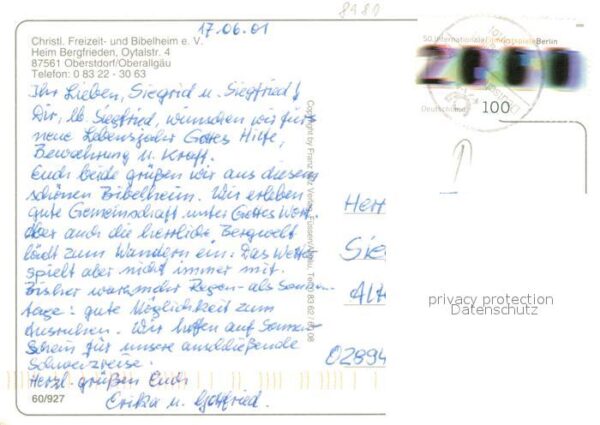 8980
17.06.01
Christl. Freizeit- und Bibelheim e. V.
Heim Bergfrieden, Oytalstr. 4
87561 Oberstdorf/Oberallgäu
Telefon: 0 83 22 - 30 63
Ihr Lieben, Siegrid u. Siegfried!
Dir, lb. Siegfried, wünschen wir fürs
neue Lebensjahr Gottes Hilfe,
Bewahrung u. Kraft.
Euch beide grüßen wir aus diesem
schönen Bibelheim. Wir erleben
gute Gemeinschaft unter Gottes Wort,
aber auch die herrliche Bergwelt
lädt zum Wandern ein. Das Wetter
spielt aber nicht immer mit.
Bisher waren mehr Regen- als Sonnen-
tage: gute Möglichkeit zum
Ausruhen. Wir hoffen auf Sonnen-
schein für unsere anschließende
Schweizreise.
Herzl. grüßen Euch
Erika u. Gottfried.
60/927
Copyright by Franz Verlag, Füssen
50. Internationale Filmfestspiele Berlin
Deutschland
100
Herr
Sie
Alt
02894
privacy protection
Datenschutz